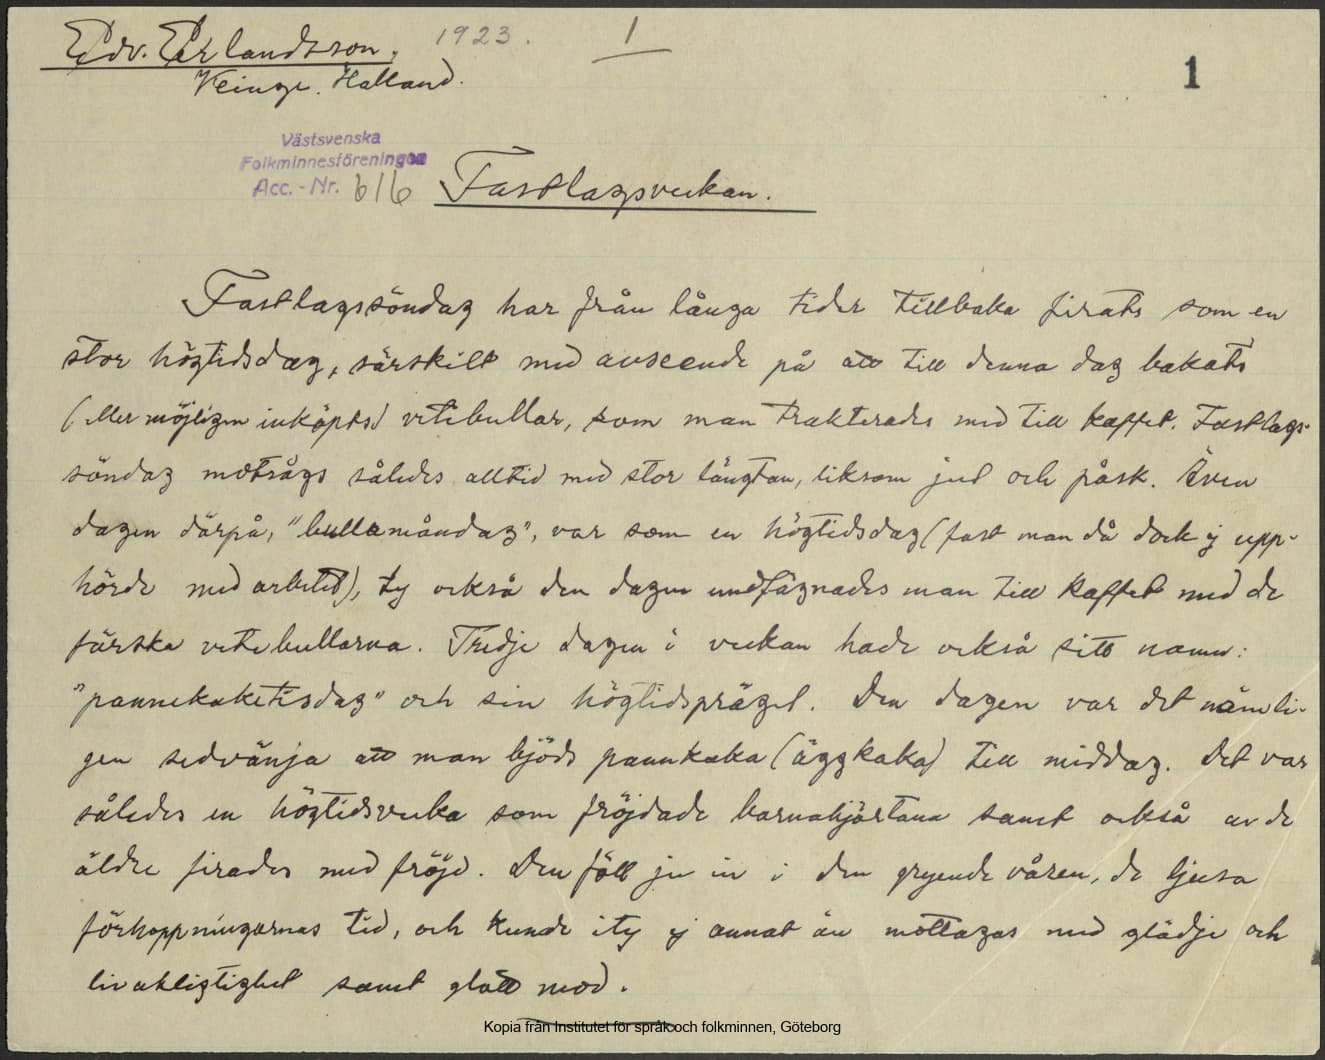 Edv. Erlandsson. 1923. 1
1
Veinge. Halland.
Västsvenska
Folkminnesföreningen
Acc.-Nr. 616
Fastlagsveckan.
Fastlagssöndag har från långa tider tillbaka firats som en
stor högtidsdag, särskilt med avseende på att till denna dag bakats
(eller möjligen inköpts) vetebullar, som man trakterades med till kaffet. Fastlags-
söndag motsågs således alltid med stor längtan, liksom jul och påsk. Även
dagen därpå, "bullamåndag", var som en högtidsdag (fast man då dock ej upp-
hörde med arbetet), ty också den dagen undfägnades man till kaffet med de
färska vetebullarna. Tredje dagen i veckan hade också sitt namn:
"pannekaketisdag" och sin högtidsprägel. Den dagen var det nämli-
gen sedvänja att man bjöds pannkaka (äggkaka) till middag. Det var
således en högtidsvecka som fröjdade barnahjärtana samt också av de
äldre firades med fröjd. Den föll ju in i den gryende våren, de ljusa
förhoppningarnas tid, och kunde ity ej annat än mottagas med glädje och
livaktigtighet samt glatt mod.
Kopia från Institutet för språk och folkminnen, Göteborg